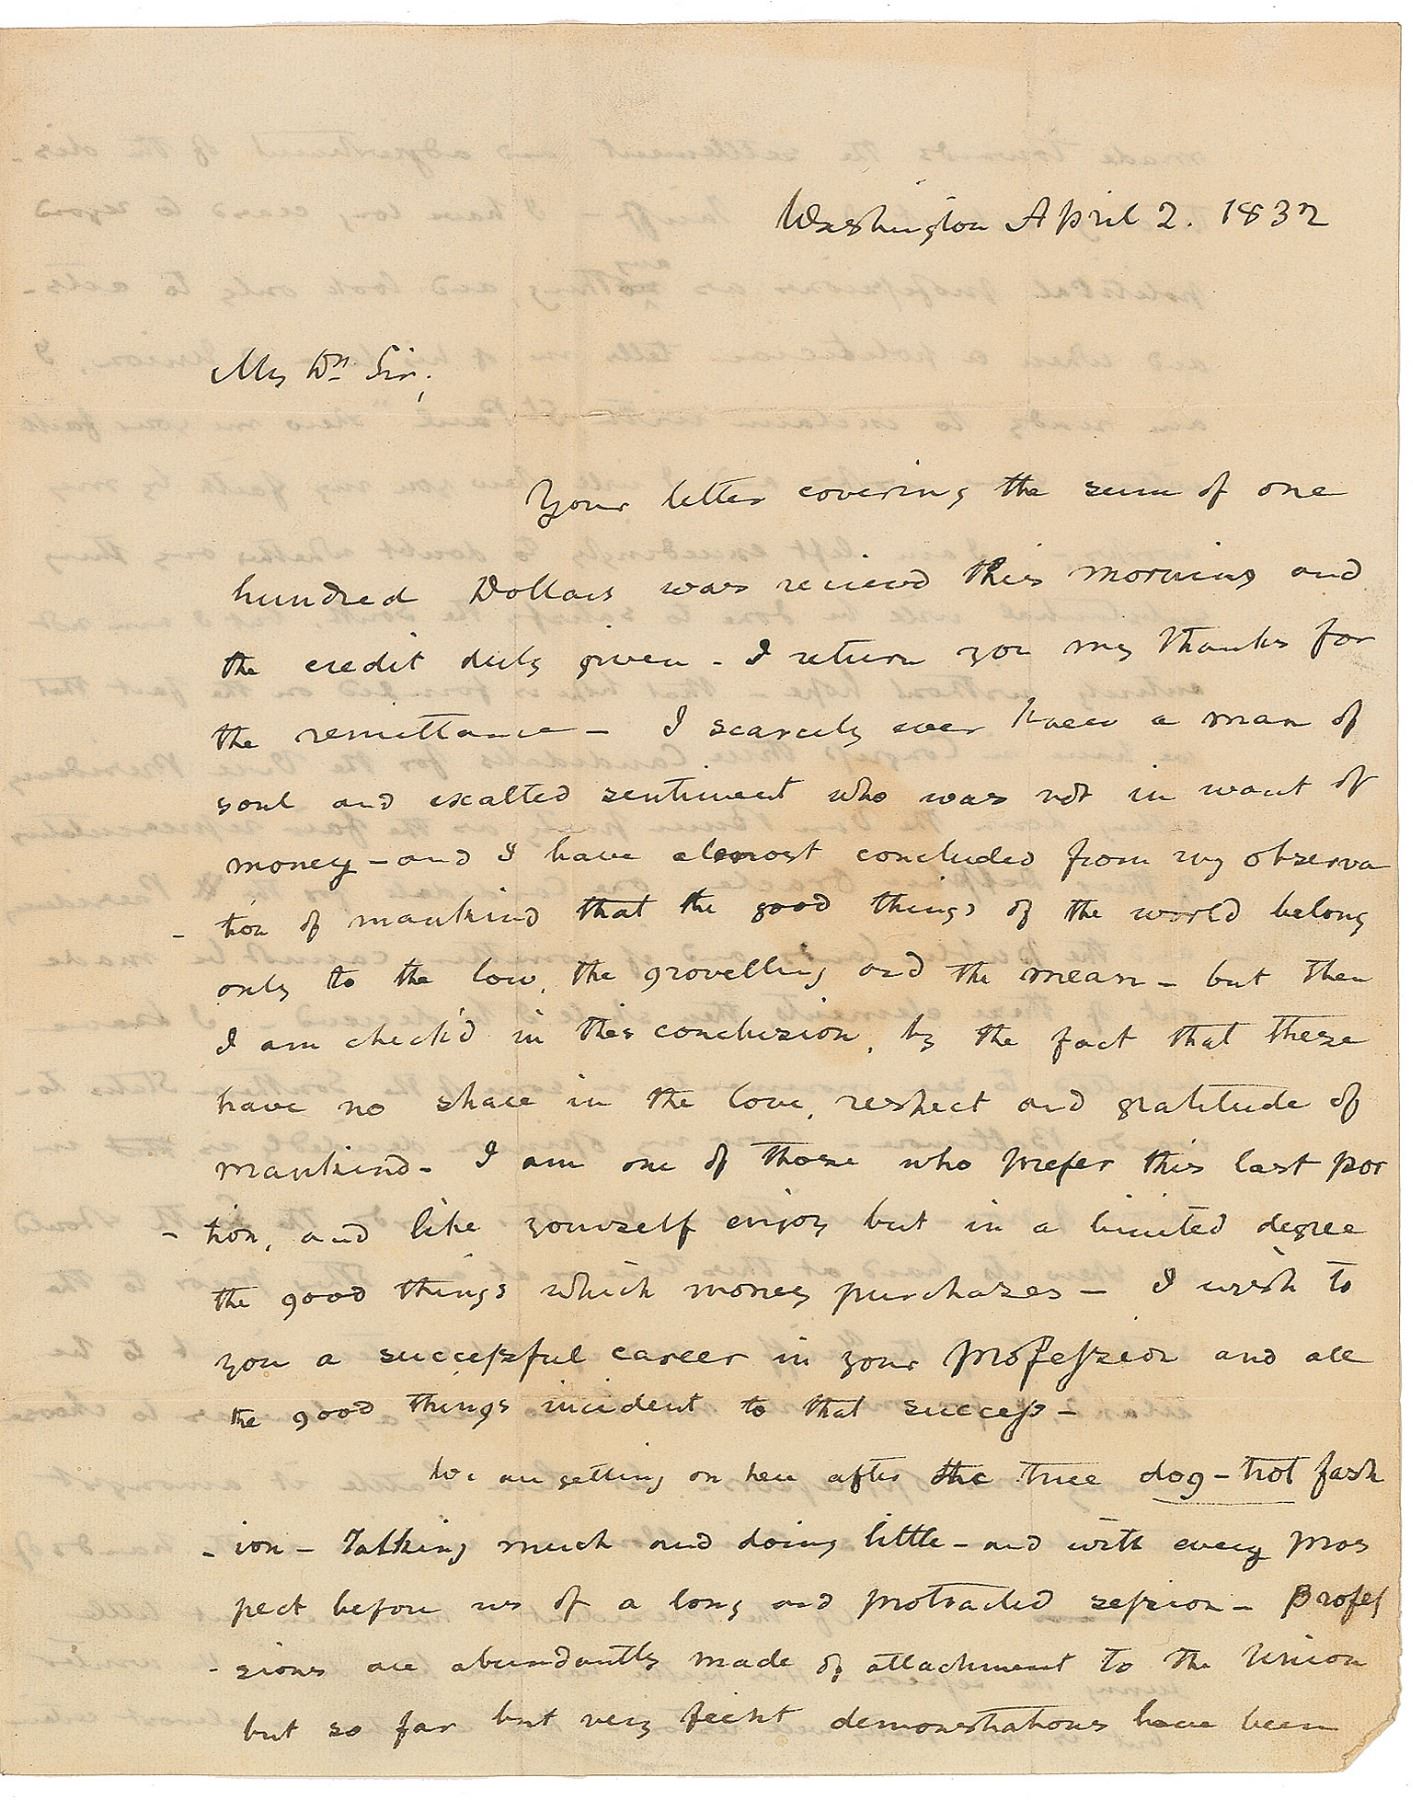 Washington April 2. 1832
My Dr Sir,
Your letter covering the sum of one
hundred Dollars was recieved this morning and
the credit duly given - I return you my thanks for
the remittance - I scarcely ever knew a man of
soul and exalted sentiment who was not in want of
money - and I have almost concluded from my observa
- tion of mankind that the good things of the world belong
only to the low, the grovelling and the mean - but then
I am check'd in this conclusion, by the fact that these
have no share in the love, respect and gratitude of
mankind - I am one of those who prefer this last por
- tion, and like yourself enjoy but in a limited degree
the good things which money purchases - I wish to
you a successful career in your profession and all
the good things incident to that success -
We are getting on here after the true dog-trot fash
- ion - Talking much and doing little - and with every pros
pect before us of a long and protracted session - Profes
- sions are abundantly made of attachment to the Union
but so far but very feeble demonstrations have been